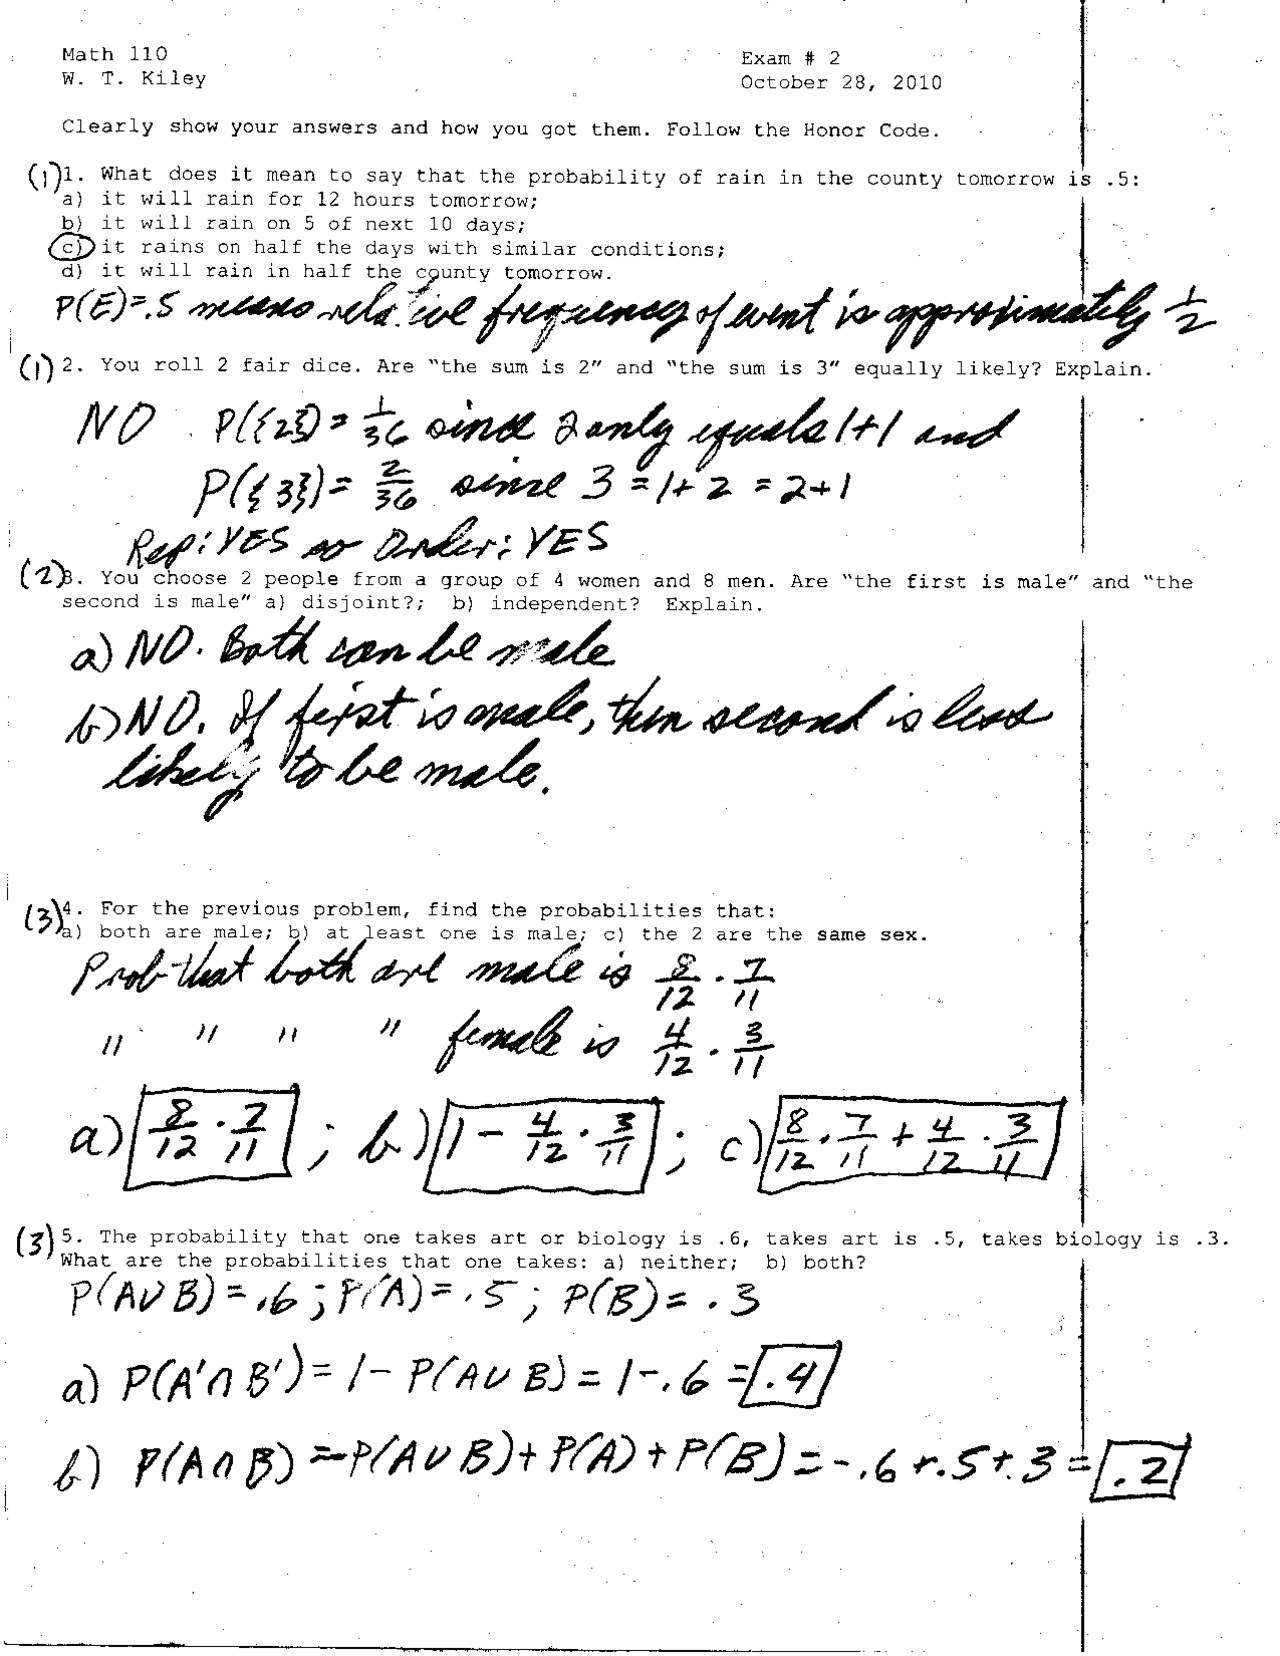 Math 110 Exam # 2
W. T. Kiley October 28, 2010
Clearly show your answers and how you got them. Follow the Honor Code.
(1) 1. What does it mean to say that the probability of rain in the county tomorrow is .5:
a) it will rain for 12 hours tomorrow;
b) it will rain on 5 of next 10 days;
c) it rains on half the days with similar conditions;
d) it will rain in half the county tomorrow.
P(E)=.5 means relative frequency of event is approximately 1/2
(1) 2. You roll 2 fair dice. Are “the sum is 2” and “the sum is 3” equally likely? Explain.
NO P({2}) = 1/36 since 2 only equals 1+1 and
P({3}) = 2/36 since 3 = 1+2 = 2+1
Rep: YES so Order: YES
(2) 3. You choose 2 people from a group of 4 women and 8 men. Are “the first is male” and “the
second is male” a) disjoint?; b) independent? Explain.
a) NO. Both can be male
b) NO. If first is male, then second is less
likely to be male.
(3) 4. For the previous problem, find the probabilities that:
a) both are male; b) at least one is male; c) the 2 are the same sex.
Prob that both are male is 8/12 · 7/11
" " " " female is 4/12 · 3/11
a) 8/12 · 7/11 ; b) 1 - 4/12 · 3/11 ; c) 8/12 · 7/11 + 4/12 · 3/11
(3) 5. The probability that one takes art or biology is .6, takes art is .5, takes biology is .3.
What are the probabilities that one takes: a) neither; b) both?
P(A∪B) = .6 ; P(A) = .5 ; P(B) = .3
a) P(A'∩B') = 1 - P(A∪B) = 1 - .6 = .4
b) P(A∩B) = -P(A∪B) + P(A) + P(B) = -.6 + .5 + .3 = .2